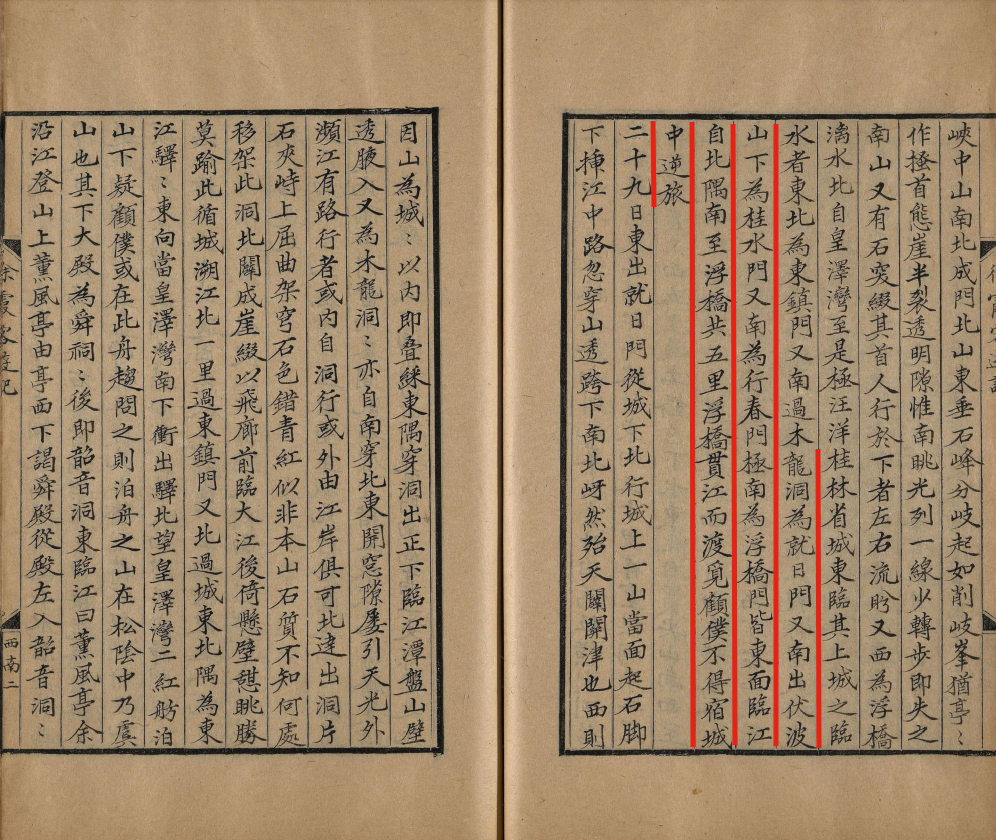 峽中山南北成門北山東垂石峰分岐起如削岐峯猶亭〻
作搔首態崖半裂透明隙惟南眺光列一線少轉步即失之
南山又有石突綴其首人行於下者左右流眄又西為浮橋
漓水北自皇澤灣至是極汪洋桂林省城東臨其上城之臨
水者東北為東鎮門又南過木龍洞為就日門又南出伏波
山下為桂水門又南為行春門極南為浮橋門皆東面臨江
自北隅南至浮橋共五里浮橋貫江而渡覓顧僕不得宿城
中逆旅
二十九日東出就日門從城下北行城上一山當面起石脚
下揷江中路忽穿山透跨下南北岈然殆天闢關津也西則
因山為城〻以内即叠綵東隅穿洞出正下臨江潭盤山壁
透腋入又為木龍洞〻亦自南穿北東開窓隙屡引天光外
瀕江有路行者或内自洞行或外由江岸俱可北達出洞片
石夾峙上屈曲架穹石色錯青紅似非本山石質不知何處
移架此洞北闢成崖綴以飛廊前臨大江後倚懸壁憇眺勝
莫踰此循城溯江北一里過東鎮門又北過城東北隅為東
江驛〻東向當皇澤灣南下衝出驛北望皇澤灣二紅舫泊
山下疑顧僕或在此舟趨問之則泊舟之山在松陰中乃虞
山也其下大殿為舜祠〻後即韶音洞東臨江曰薰風亭余
沿江登山上薰風亭由亭西下謁舜殿從殿左入韶音洞〻
徐霞客遊記
西南二